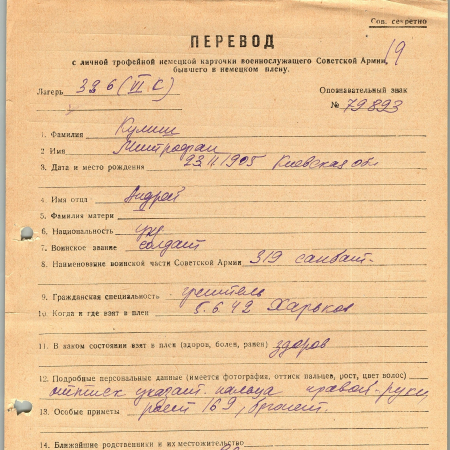 Сов. секретно
ПЕРЕВОД
с личной трофейной немецкой карточки военнослужащего Советской Армии,
бывшего в немецком плену.
19
Лагерь 326 (VI C) Опознавательный знак
№ 79893
1. Фамилия Кулиш
2 Имя Митрофан
3. Дата и место рождения 23.11.1905 Киевская обл
4. Имя отца Андрей
5. Фамилия матери
6. Национальность укр
7. Воинское звание солдат
8. Наименование воинской части Советской Армии 319 санбат.
9. Гражданская специальность
10. Когда и где взят в плен 5.6.42 Харьков
11. В каком состоянии взят в плен (здоров, болен, ранен) здоров
12. Подробные персональные данные (имеется фотография, оттиск пальцев, рост, цвет волос)
оттиск указат. пальца правой руки
13. Особые приметы рост 169, брюнет.
14. Ближайшие родственники и их местожительство